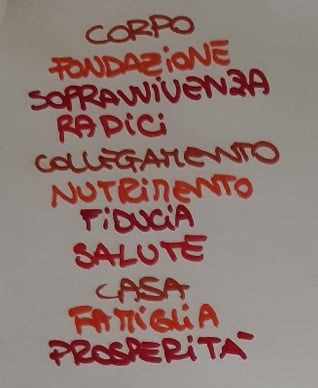 CORPO
FONDAZIONE
SOPRAVVIVENZA
RADICI
COLLEGAMENTO
NUTRIMENTO
FIDUCIA
SALUTE
CASA
FAMIGLIA
PROSPERITÀ